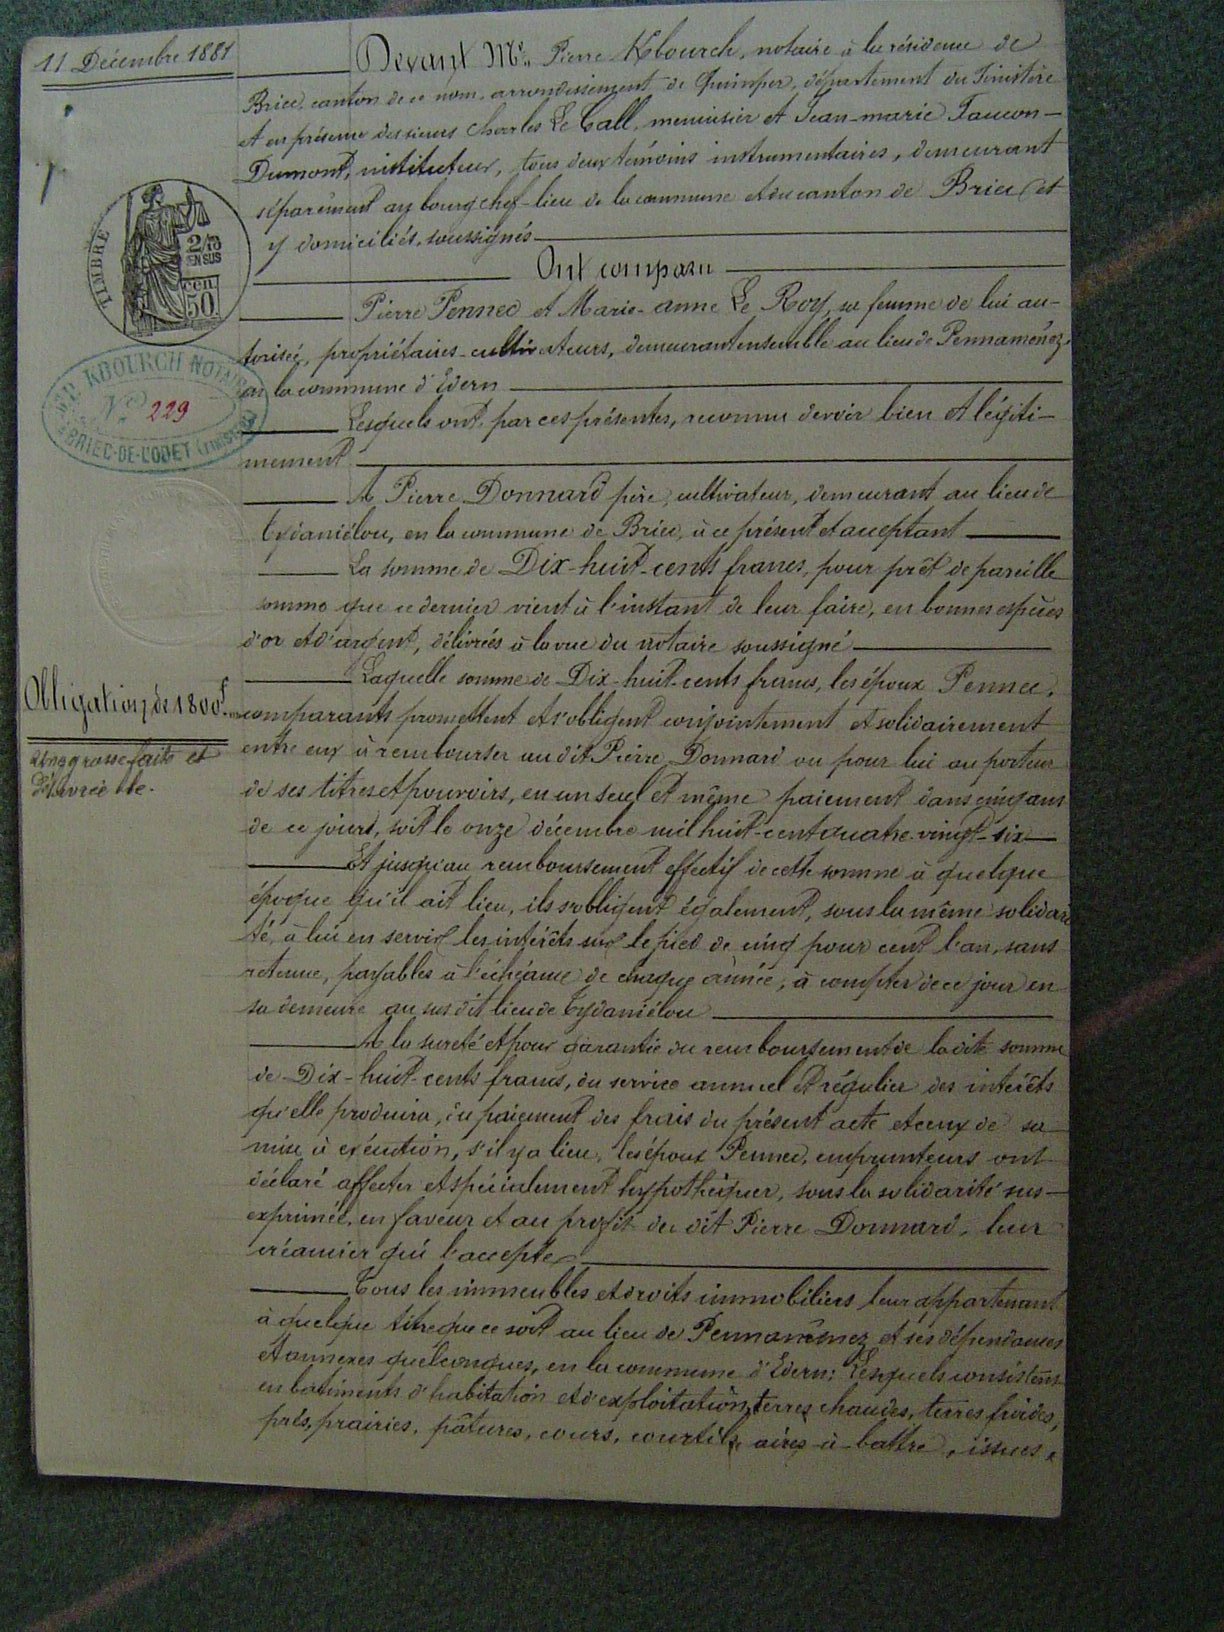 11 Décembre 1881
Devant Me. Pierre Kbourch, notaire à la résidence de
Briec, canton de ce nom, arrondissement de Quimper, département du Finistère
et en présence des sieurs Charles Le Gall, menuisier et Jean-marie Faucon-
Dumont, instituteur, tous deux témoins instrumentaires, demeurant
séparément au bourg chef-lieu de la commune et du canton de Briec et
y domiciliés, soussignés
Ont comparu
Pierre Pennec et Marie-anne Le Roy, sa femme de lui au-
torisée, propriétaires-cultivateurs, demeurant ensemble au lieu de Pennaménez
en la commune d'Edern
Lesquels ont, par ces présentes, reconnu devoir bien et légiti-
mement
A Pierre Donnard père, cultivateur, demeurant au lieu de
Tydaniélou, en la commune de Briec, à ce présent et acceptant
La somme de Dix-huit-cents francs, pour prêt de pareille
somme que ce dernier vient à l'instant de leur faire, en bonnes espèces
d'or et d'argent, délivrées à la vue du notaire soussigné
Laquelle somme de Dix-huit-cents francs, les époux Pennec,
comparants promettent et s'obligent conjointement et solidairement
entre eux à rembourser au dit Pierre Donnard ou pour lui au porteur
de ses titres et pouvoirs, en un seul et même paiement dans cinq ans
de ce jour, soit le onze décembre mil huit-cent quatre-vingt-six
Et jusqu'au remboursement effectif de cette somme à quelque
époque qu'il ait lieu, ils s'obligent également, sous la même solidari
té, à lui en servir les intérêts sur le pied de cinq pour cent l'an, sans
retenue, payables à l'échéance de chaque année, à compter de ce jour en
sa demeure au susdit lieu de Tydaniélou
A la sureté et pour garantie du remboursement de la dite somme
de Dix-huit-cents francs, du service annuel et régulier des intérêts
qu'elle produira, du paiement des frais du présent acte et ceux de sa
mise à exécution, s'il y a lieu, les époux Pennec, emprunteurs ont
déclaré affecter et spécialement hypothéquer, sous la solidarité sus-
exprimée, en faveur et au profit du dit Pierre Donnard, leur
créancier qui l'accepte
Tous les immeubles et droits immobiliers leur appartenant
à quelque titre que ce soit au lieu de Pennaménez et ses dépendances
et annexes quelconques, en la commune d'Edern; Lesquels consistent
en batiments d'habitation et d'exploitation, terres chaudes, terres froides,
prés, prairies, pâtures, cours, courtils, aires-à-battre, issues,
TIMBRE
2/10
EN SUS
cen
50
P. KBOURCH NOTAIRE
No 229
BRIEC-DE-L'ODET (FINISTÈRE)
Obligation de 1800f.
une grosse faite et
délivrée le.